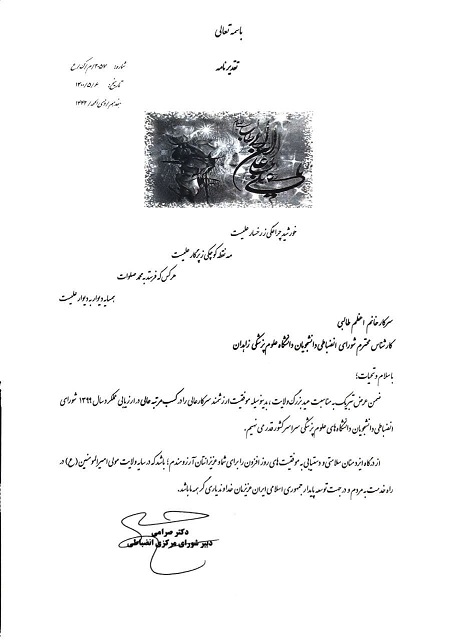 باسمه تعالی
تقدیرنامه
شماره: ۲۰۵۷/م/ک/ح
تاریخ: ۱۴۰۰/۵/۶
هفدهم ذی الحجه/۱۴۴۲
خورشید چراغکی ز رخسار علیست
مه نقطه کوچکی ز پرگار علیست
هرکس که فرستد به محمد صلوات
همسایه دیوار به دیوار علیست
سرکار خانم اعظم طالبی
کارشناس محترم شورای انضباطی دانشجویان دانشگاه علوم پزشکی زاهدان
با سلام و تحیات؛
ضمن عرض تبریک به مناسبت عید بزرگ ولایت، بدینوسیله موفقیت ارزشمند سرکارعالی را در کسب مرتبه عالی در ارزیابی عملکرد سال ۱۳۹۹ شورای
انضباطی دانشجویان دانشگاه های علوم پزشکی سراسر کشور تقدیر می نمیم.
از درگاه ایزد منان سلامتی و دستیابی به موفقیت های روز افزون را برای شما و عزیزانتان آرزومندم؛ باشد که در سایه ولایت مولی امیرالمومنین (ع) در
راه خدمت به مردم و در جهت توسعه پایدار جمهوری اسلامی ایران عزیزمان خداوند یاری گر همه ما باشد.
دکتر صرامی
دبیر شورای مرکزی انضباطی